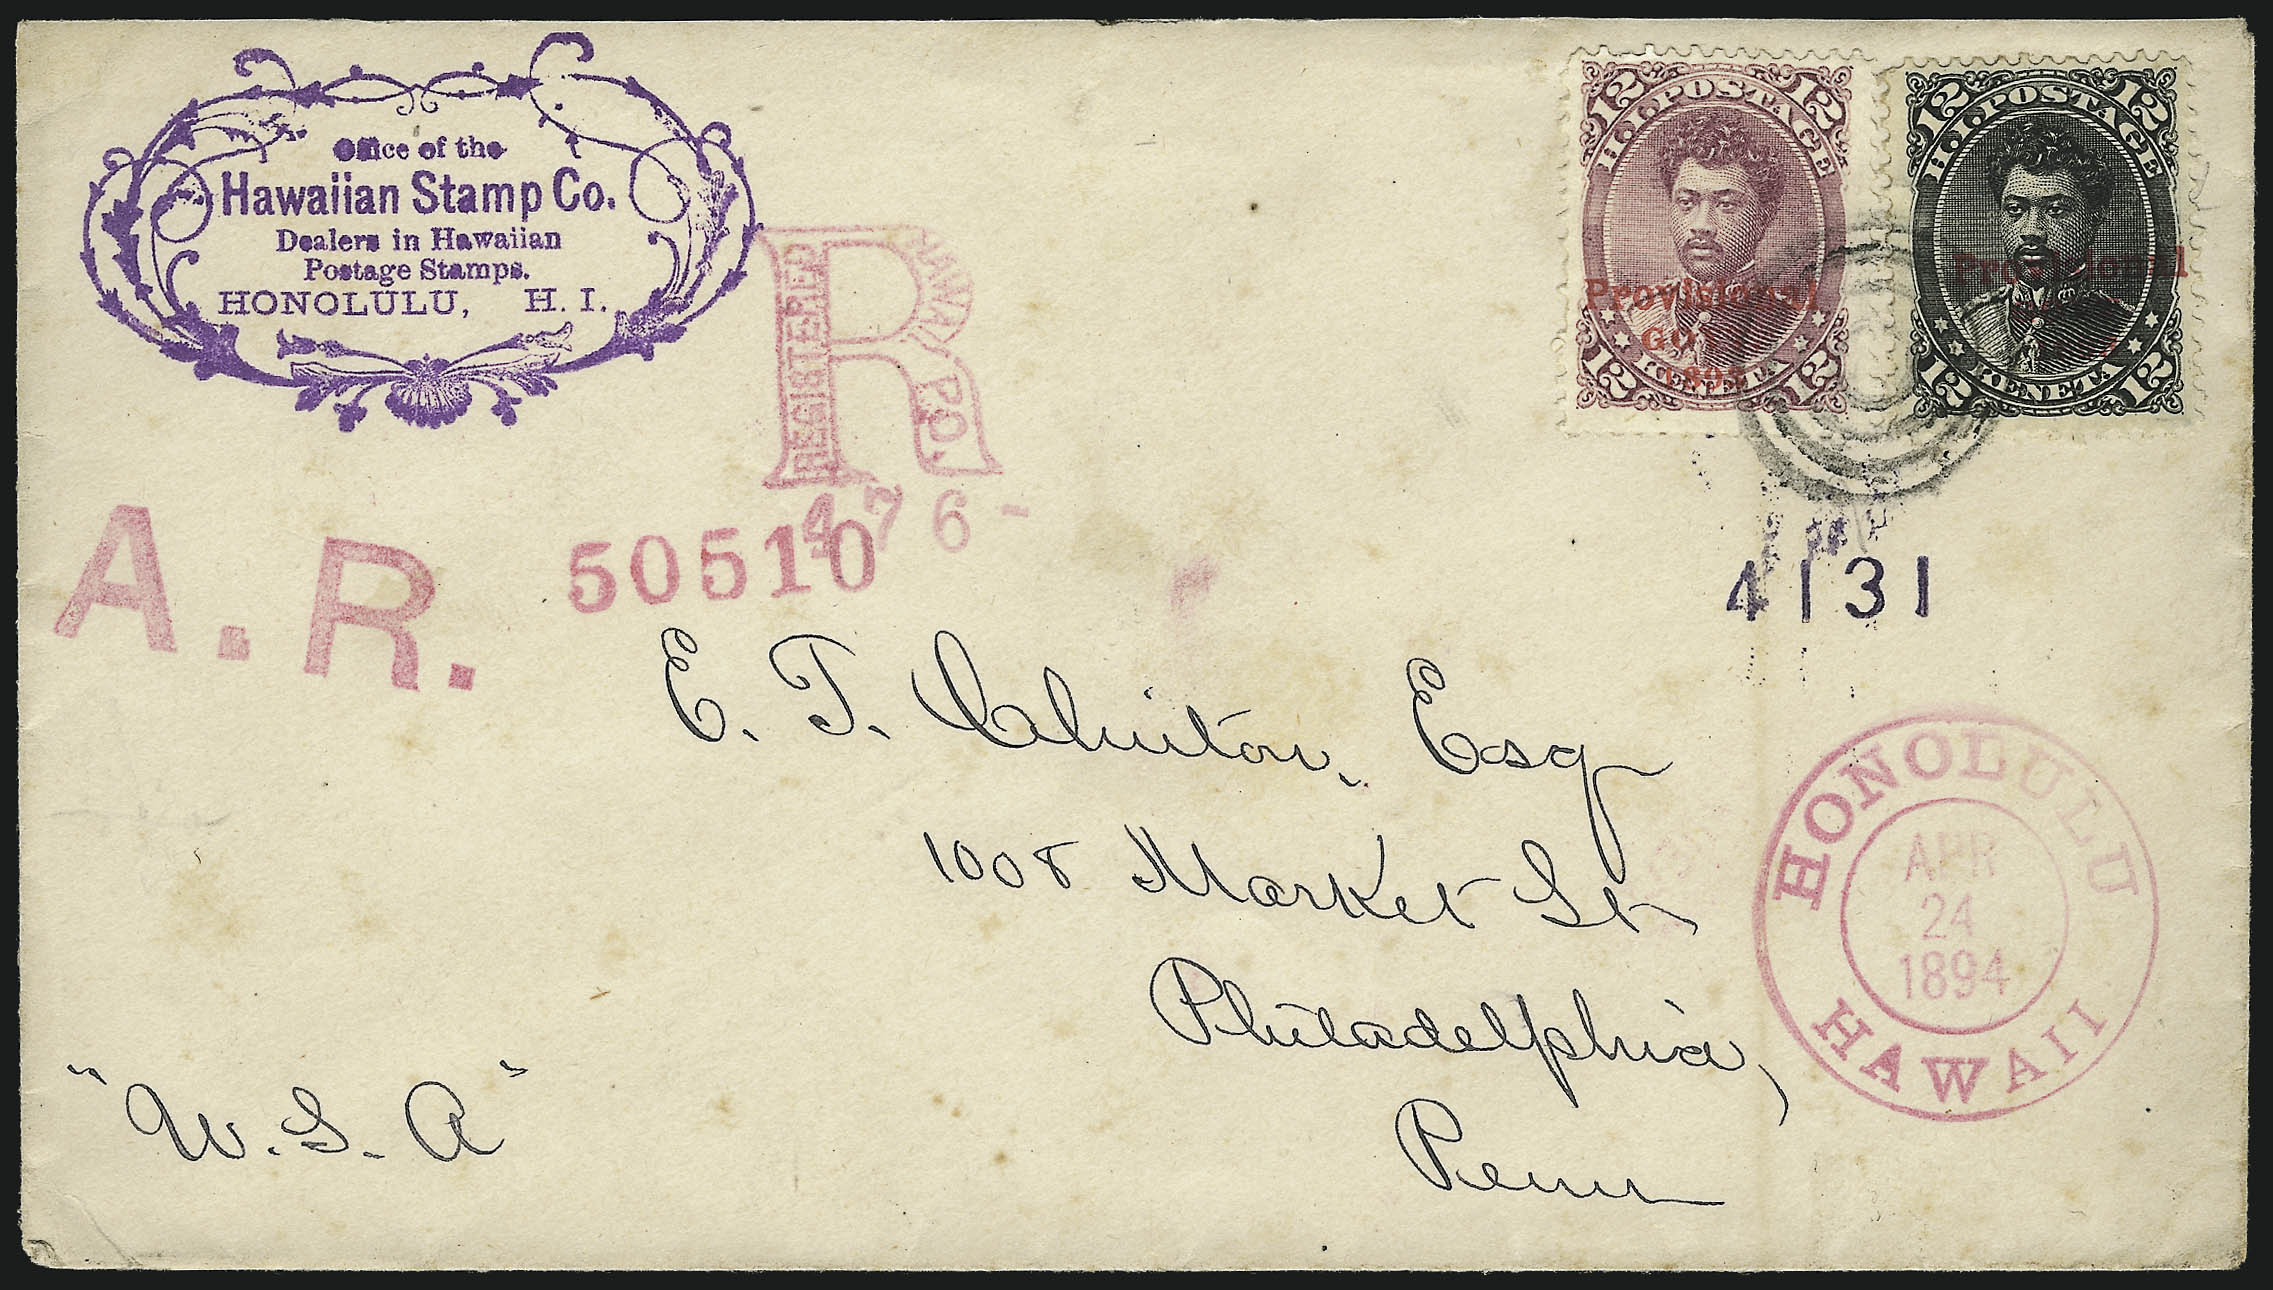 Office of the
Hawaiian Stamp Co.
Dealers in Hawaiian
Postage Stamps.
HONOLULU, H. I.
REGISTERED
HAWAII P.O.
476-
A.R.
50510
12 12
H.I. POSTAGE
Provisional
GOVT
1893
12 12
KENETA
12 12
H.I. POSTAGE
Provisional
12 12
KENETA
4131
E. T. Esq
1008 Market St
Philadelphia,
Penn
"U. S. A"
HONOLULU
APR
24
1894
HAWAII